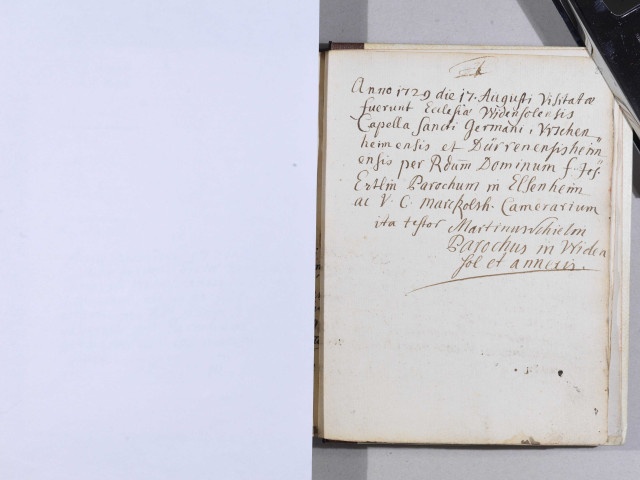 Anno 1729 die 17. Augusti Visitatæ
fuerunt Ecclesiæ Widensolensis
Capella Sancti Germani, Urschen
heimensis et Dürrenensisheim
ensis per Rdum Dominum f. Jos.
Ertlin Parochum in Elsenheim
ac V. C. Marckolsh. Camerarium
ita testor Martinus Schielin
Parochus in Widen
sol et annexis.